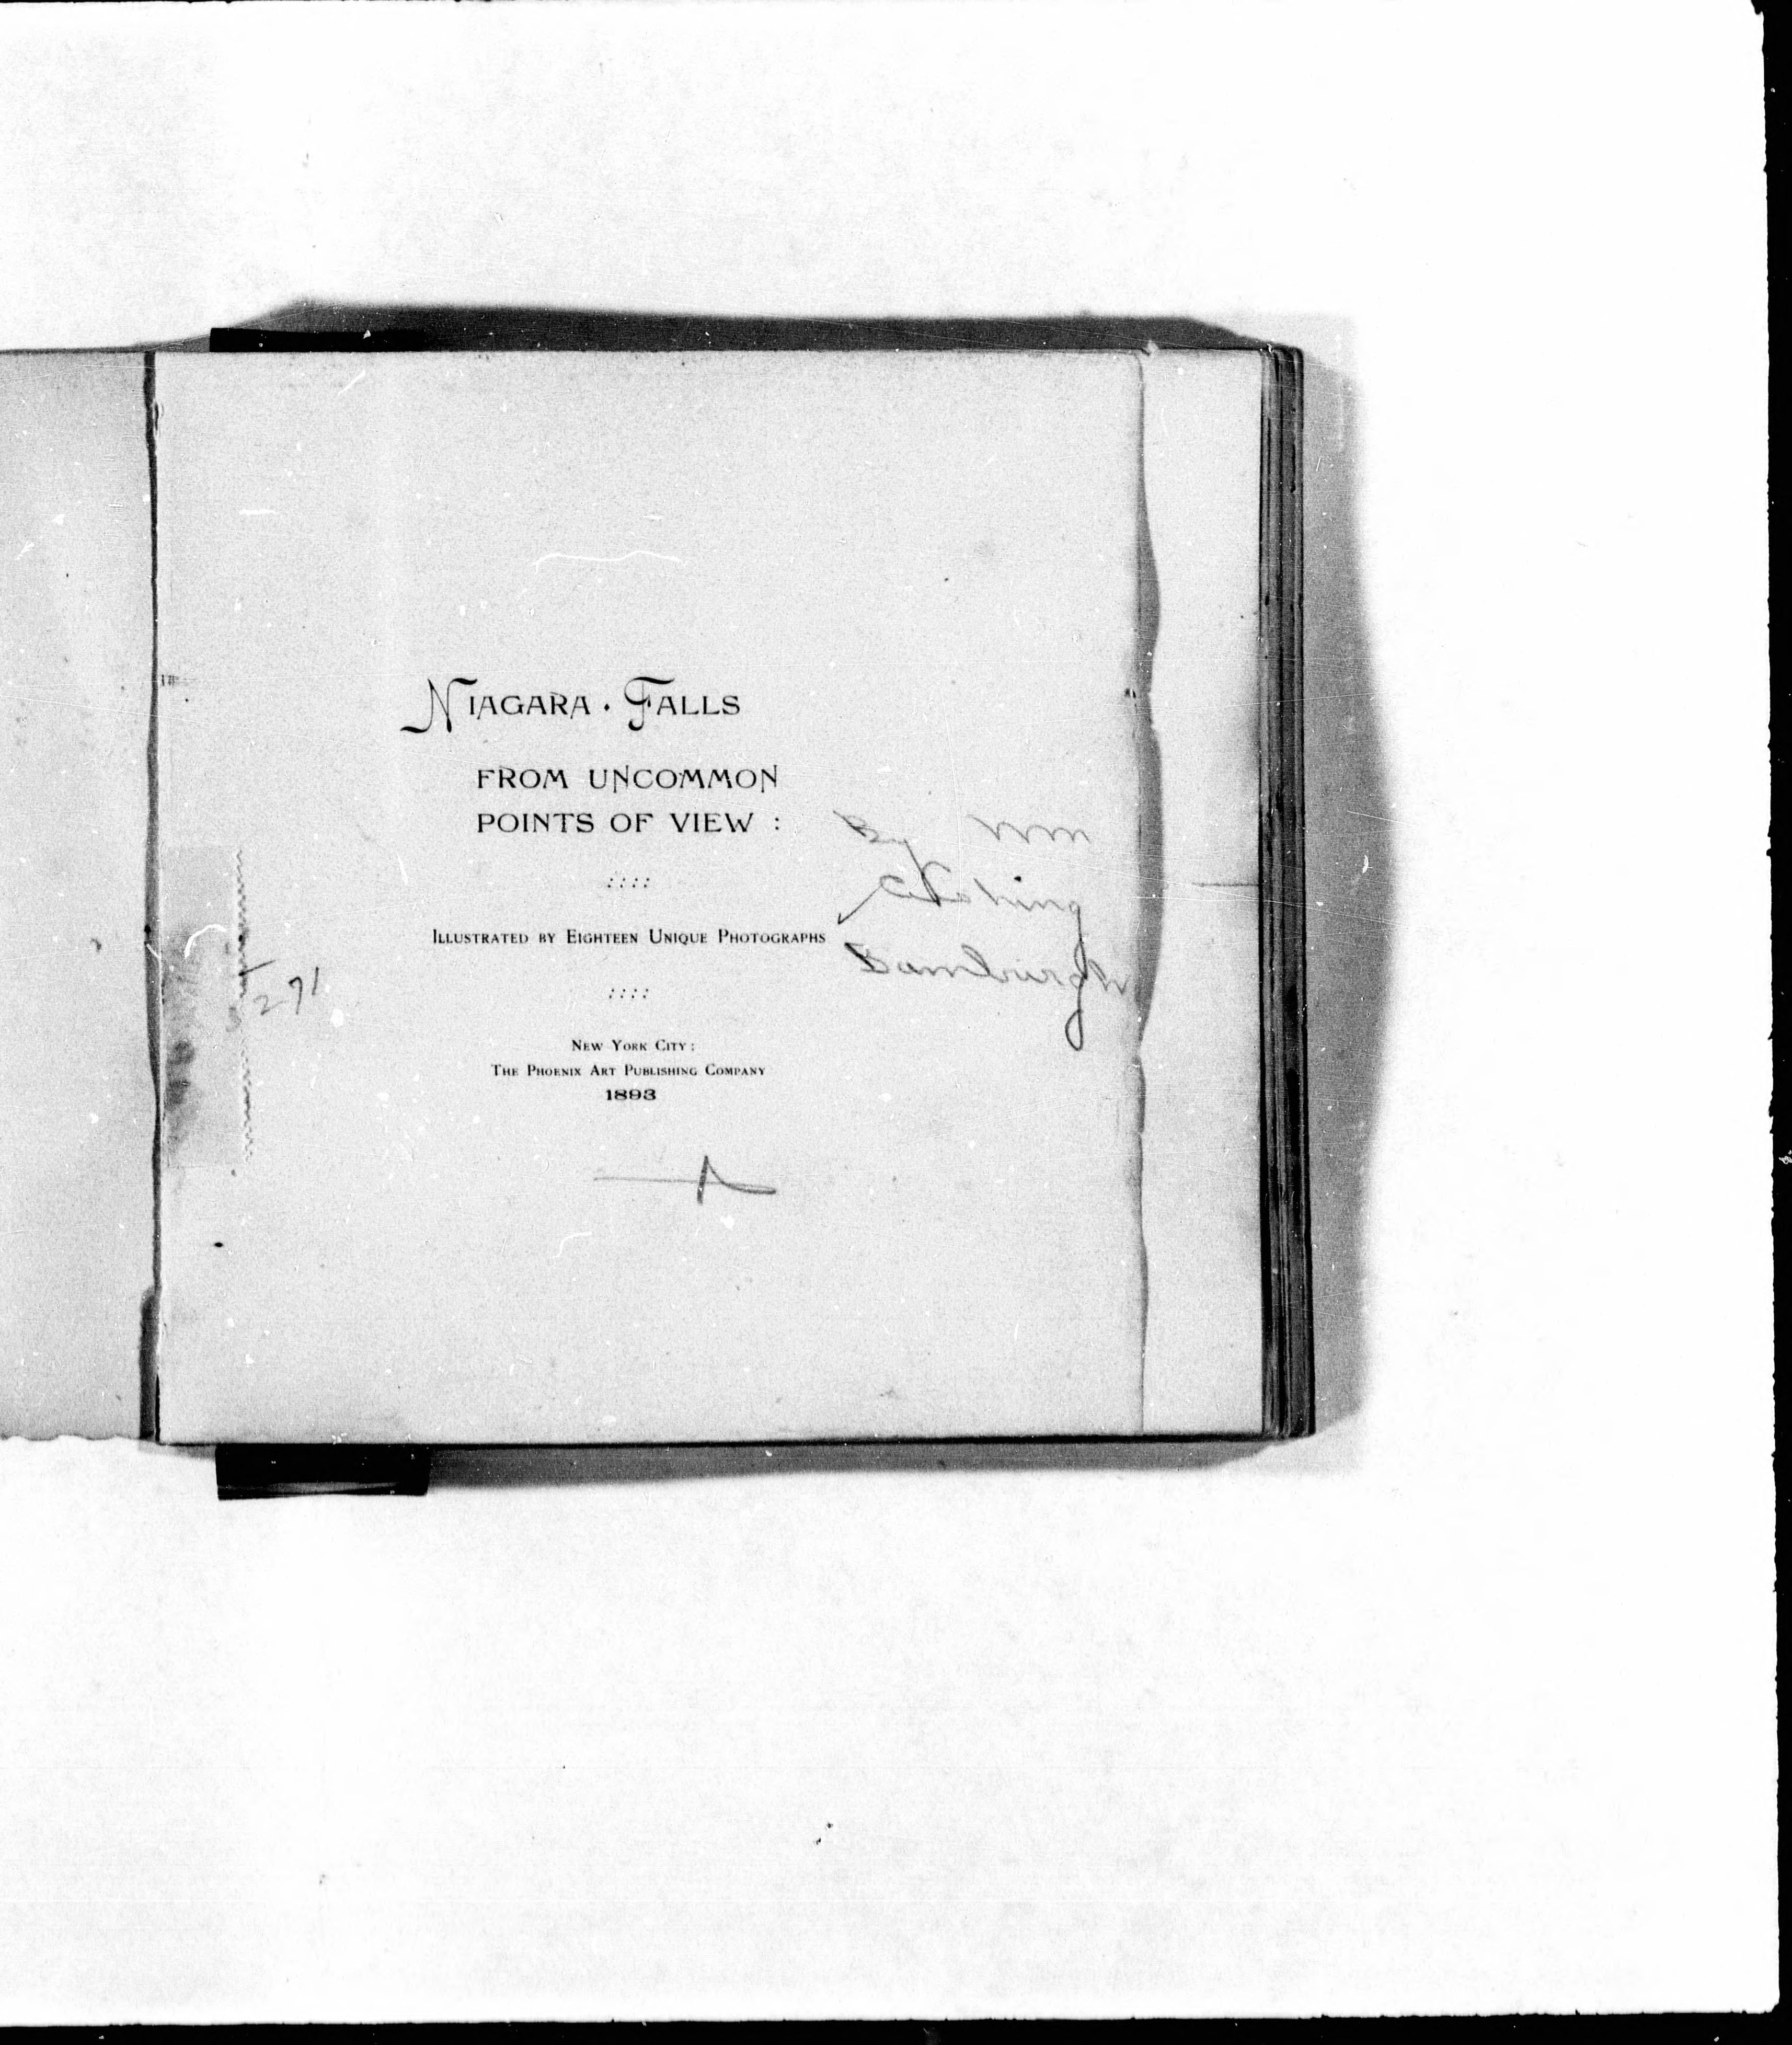 NIAGARA · FALLS
FROM UNCOMMON
POINTS OF VIEW :
By Wm
Bamburgh
ILLUSTRATED BY EIGHTEEN UNIQUE PHOTOGRAPHS
271
NEW YORK CITY :
THE PHOENIX ART PUBLISHING COMPANY
1893